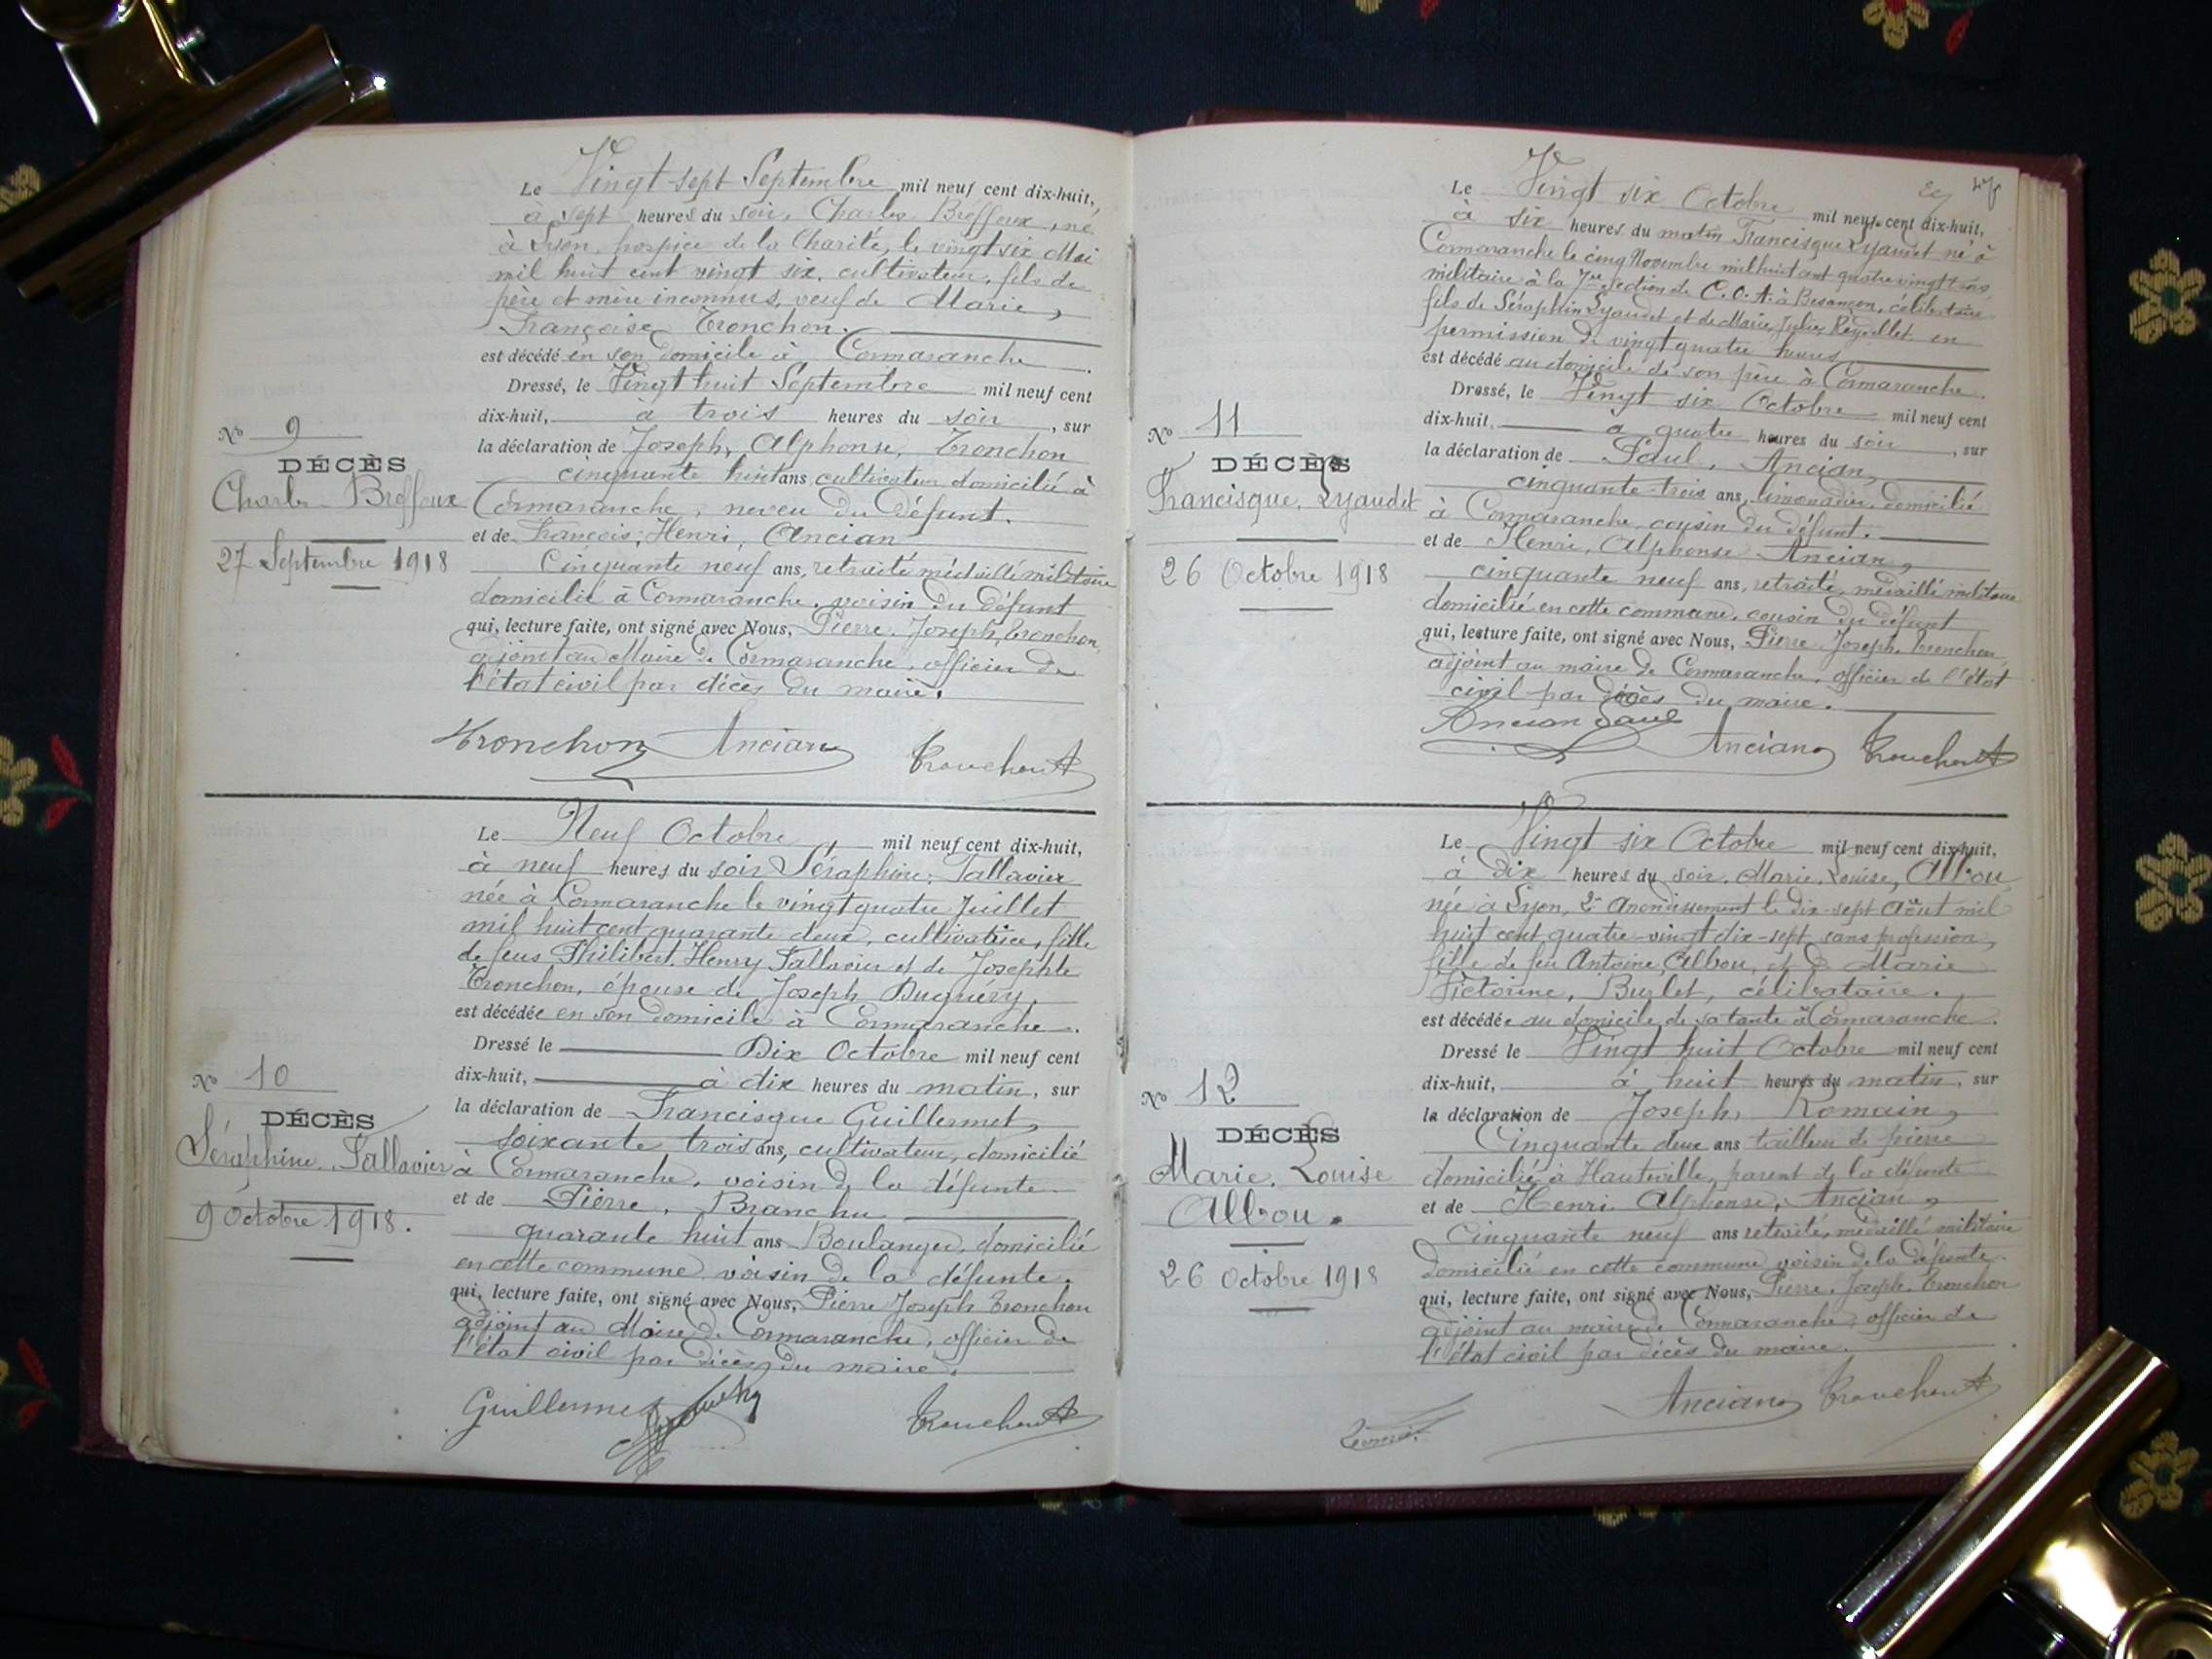 Le Vingt sept Septembre mil neuf cent dix-huit,
à sept heures du soir, Charles Breffoux, né
à Lyon, hospice de la Charité, le vingt six Mai
mil huit cent vingt six, cultivateur, fils de
père et mère inconnus, veuf de Marie,
Françoise Tronchon.
est décédé en son domicile à Cormaranche.
Dressé, le Vingt huit Septembre mil neuf cent
dix-huit, à trois heures du soir, sur
la déclaration de Joseph, Alphonse, Tronchon
cinquante huit ans, cultivateur domicilié à
Cormaranche, neveu du défunt.
et de François, Henri, Ancian
Cinquante neuf ans, retraité médaillé militaire
domicilié à Cormaranche, voisin du défunt
qui, lecture faite, ont signé avec Nous, Pierre, Joseph, Tronchon,
adjoint au Maire de Cormaranche, officier de
l'état civil par décès du maire.
Tronchon Ancian Tronchon
No 9
DÉCÈS
Charles Breffoux
27 Septembre 1918
Le Neuf Octobre mil neuf cent dix-huit,
à neuf heures du soir Séraphine, Tallavier
née à Cormaranche le vingt quatre Juillet
mil huit cent quarante deux, cultivatrice, fille
de feus Philibert, Henry Tallavier et de Josephte
Tronchon, épouse de Joseph Duguéry,
est décédée en son domicile à Cormaranche.
Dressé le Dix Octobre mil neuf cent
dix-huit, à dix heures du matin, sur
la déclaration de Francisque Guillermet,
soixante trois ans, cultivateur, domicilié
à Cormaranche, voisin de la défunte
et de Pierre, Branchu
quarante huit ans Boulanger, domicilié
en cette commune voisin de la défunte.
qui, lecture faite, ont signé avec Nous, Pierre Joseph Tronchon
adjoint au Maire de Cormaranche, officier de
l'état civil par décès du maire.
Guillermet Tronchon
No 10
DÉCÈS
Séraphine Tallavier
9 Octobre 1918.
Le Vingt six Octobre mil neuf cent dix-huit,
à six heures du matin Francisque Lyaudet né à
Cormaranche le cinq Novembre mil huit cent quatre vingt trois
militaire à la 7me Section de C.O.A. à Besançon, célibataire
fils de Séraphin Lyaudet et de Marie, Julie, Reydellet en
permission de vingt quatre heures
est décédé au domicile de son père à Cormaranche.
Dressé, le Vingt six Octobre mil neuf cent
dix-huit, à quatre heures du soir, sur
la déclaration de Paul, Ancian,
cinquante trois ans, limonadier, domicilié
à Cormaranche cousin du défunt.
et de Henri, Alphonse Ancian,
cinquante neuf ans, retraité, médaillé militaire
domicilié en cette commune, cousin du défunt
qui, lecture faite, ont signé avec Nous, Pierre Joseph Tronchon,
adjoint au maire de Cormaranche, officier de l'état
civil par décès du maire.
Ancian Paul Ancian Tronchon
No 11
DÉCÈS
Francisque, Lyaudet
26 Octobre 1918
Le Vingt six Octobre mil neuf cent dix-huit,
à Dix heures du soir, Marie, Louise, Albou,
née à Lyon, 2e Arrondissement le dix-sept Août mil
huit cent quatre-vingt dix-sept sans profession,
fille de feu Antoine, Albou, et de Marie
Victorine, Burlet, célibataire.
est décédée au domicile de sa tante à Cormaranche.
Dressé le Vingt huit Octobre mil neuf cent
dix-huit, à huit heures du matin, sur
la déclaration de Joseph, Romain,
Cinquante deux ans tailleur de pierre
domicilié à Hauteville, parent de la défunte
et de Henri Alphonse, Ancian,
Cinquante neuf ans retraité, médaillé militaire
domicilié en cette commune voisin de la défunte
qui, lecture faite, ont signé avec Nous, Pierre, Joseph, Tronchon
adjoint au maire de Cormaranche, officier de
l'état civil par décès du maire.
Ancian Tronchon
No 12
DÉCÈS
Marie, Louise
Albou.
26 Octobre 1918